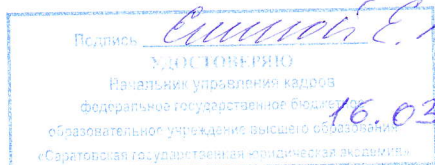 Подпись Елиной Е.
УДОСТОВЕРЯЮ
Начальник управления кадров
федеральное государственное бюджетное
16.03
образовательное учреждение высшего образования
«Саратовская государственная юридическая академия»